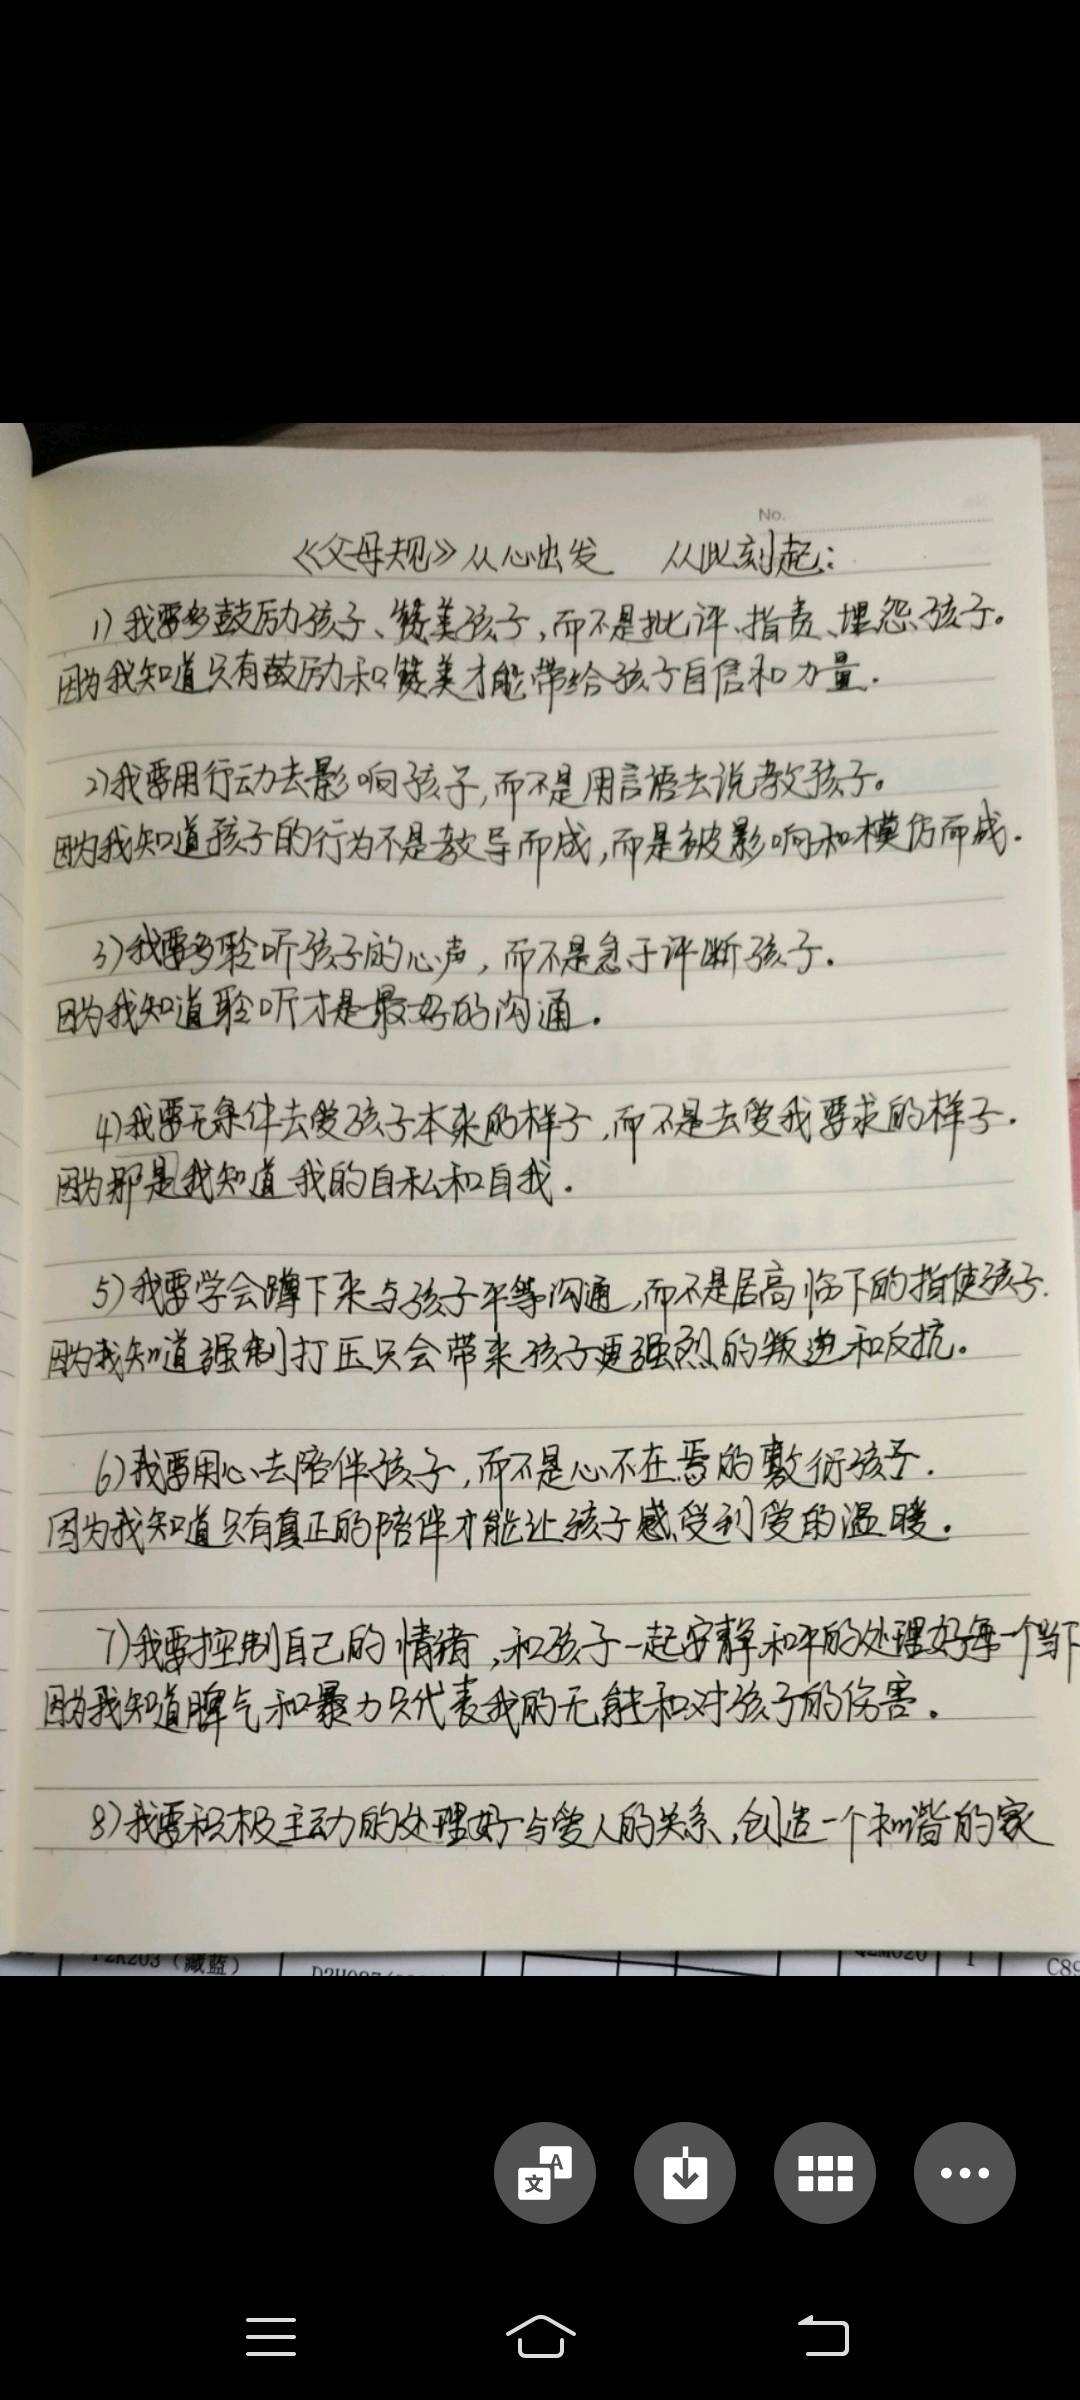 No.
《父母规》从心出发 从此刻起:
1)我要多鼓励孩子、赞美孩子,而不是批评、指责、埋怨孩子。
因为我知道只有鼓励和赞美才能带给孩子自信和力量.
2)我要用行动去影响孩子,而不是用言语去说教孩子。
因为我知道孩子的行为不是教导而成,而是被影响和模仿而成.
3)我要多聆听孩子的心声,而不是急于评断孩子.
因为我知道聆听才是最好的沟通.
4)我要无条件去爱孩子本来的样子,而不是去爱我要求的样子.
因为那是我知道我的自私和自我.
5)我要学会蹲下来与孩子平等沟通,而不是居高临下的指使孩子.
因为我知道强制打压只会带来孩子更强烈的叛逆和反抗。
6)我要用心去陪伴孩子,而不是心不在焉的敷衍孩子.
因为我知道只有真正的陪伴才能让孩子感受到爱的温暖.
7)我要控制自己的情绪,和孩子一起安静和平的处理好每一个当下
因为我知道脾气和暴力只代表我的无能和对孩子的伤害.
8)我要积极主动的处理好与爱人的关系,创造一个和谐的家
P2R203(藏蓝)
Q2M020
1
C89